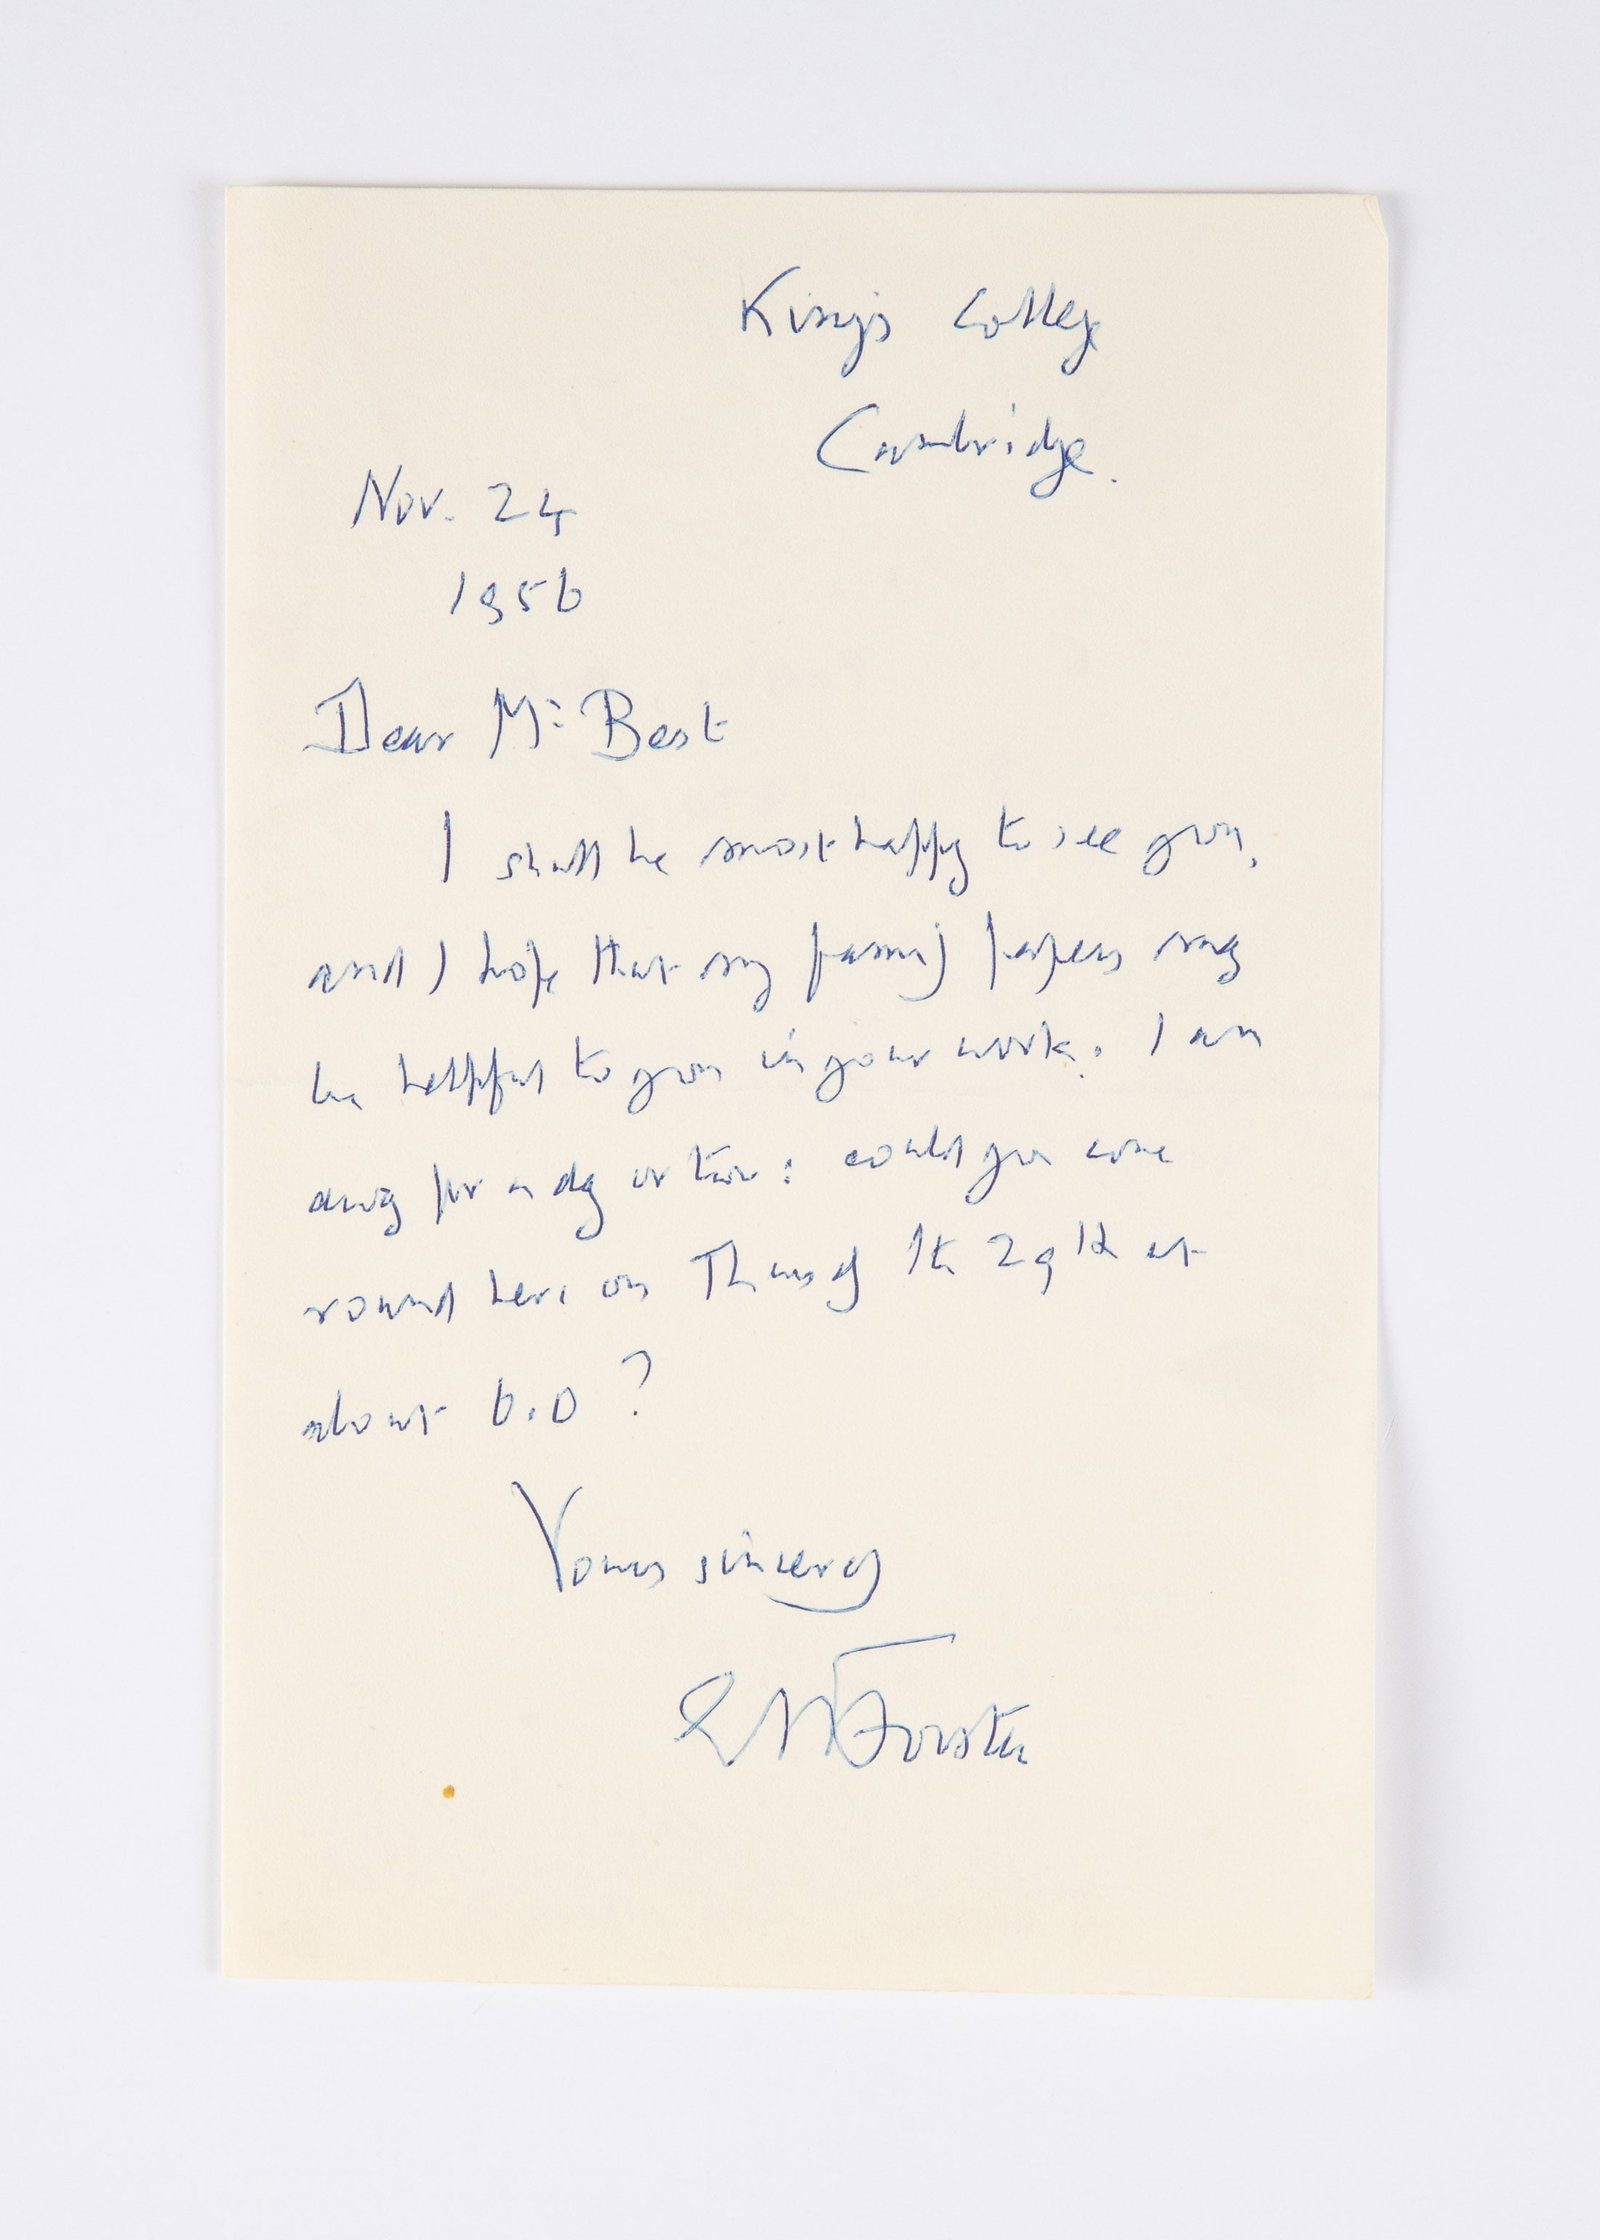 King's College
Cambridge.
Nov. 24
1956
Dear Mr Best
I shall be most happy to see you,
and I hope that my family papers may
be helpful to you in your work. I am
away for a day or two: could you come
round here on Thursday the 29th at
about 6.0?
Yours sincerely
EM Forster